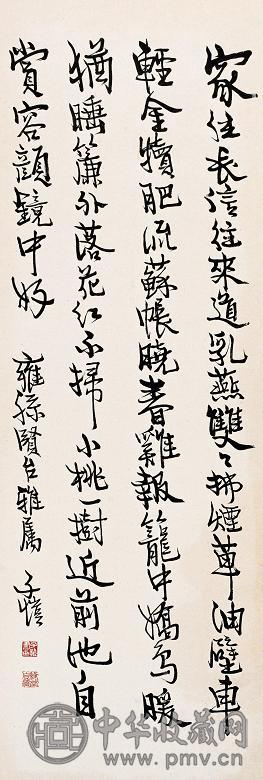 家住長信往來道乳燕雙〻拂煙草油壁車
輕金犢肥流蘇帳曉春雞報籠中嬌鳥暖
猶睡簾外落花紅不掃小桃一樹近前池自
賞容顏鏡中好 雍孫賢台雅屬 子愷
中华收藏网
www.pmv.cn